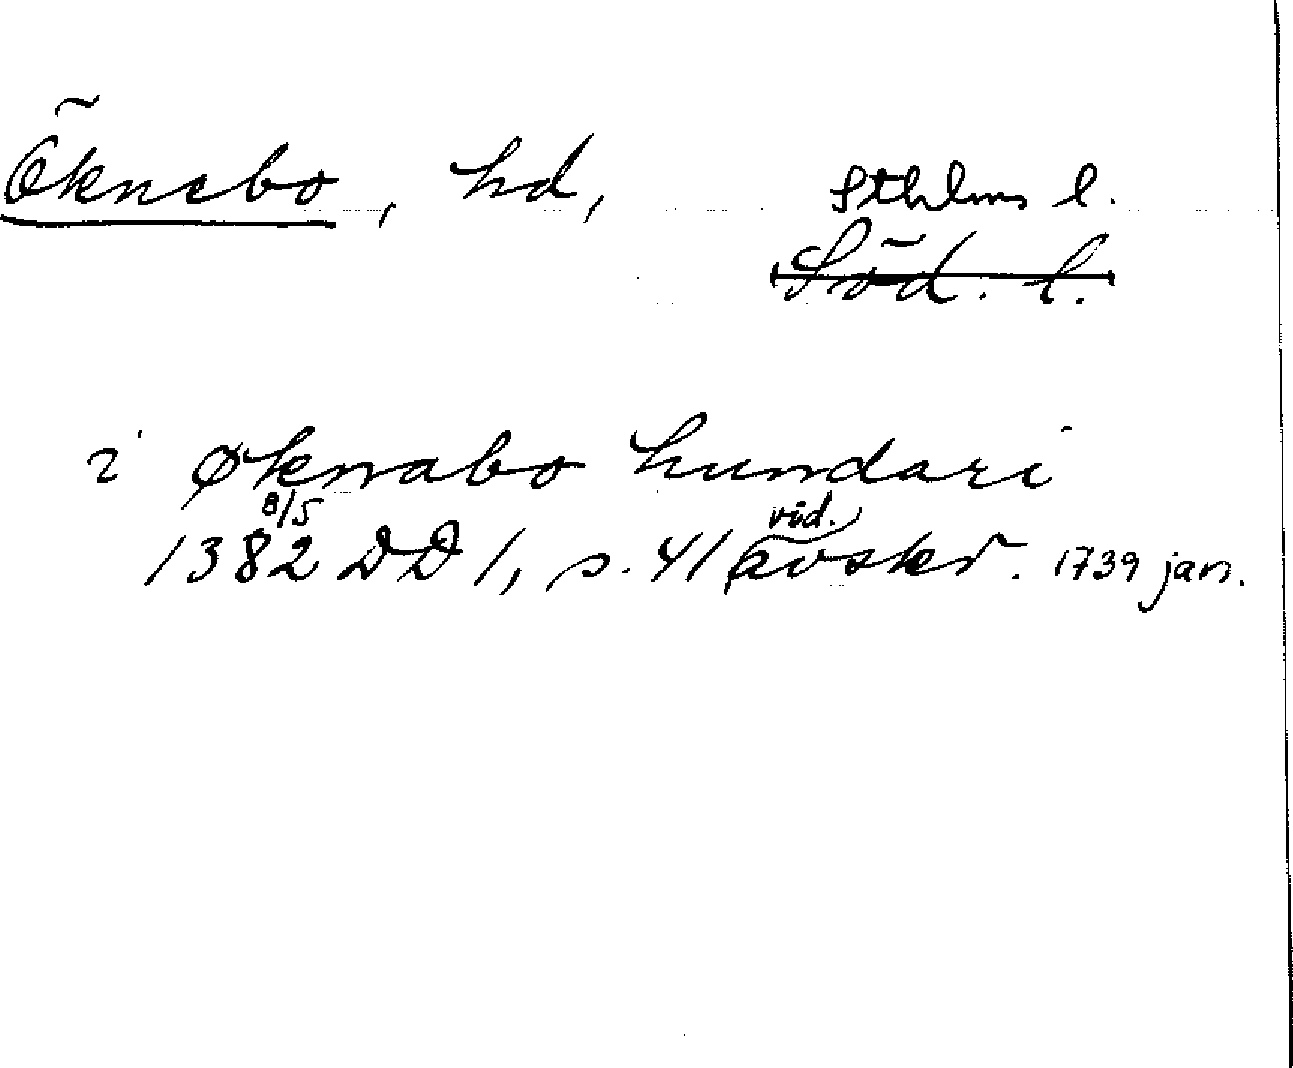 Öknebo, hd, Sthlms l.
Söd. l.
i øknabo hundari
8/5 vid.
1382 DD 1, s. 41 avskr. 1739 jan.